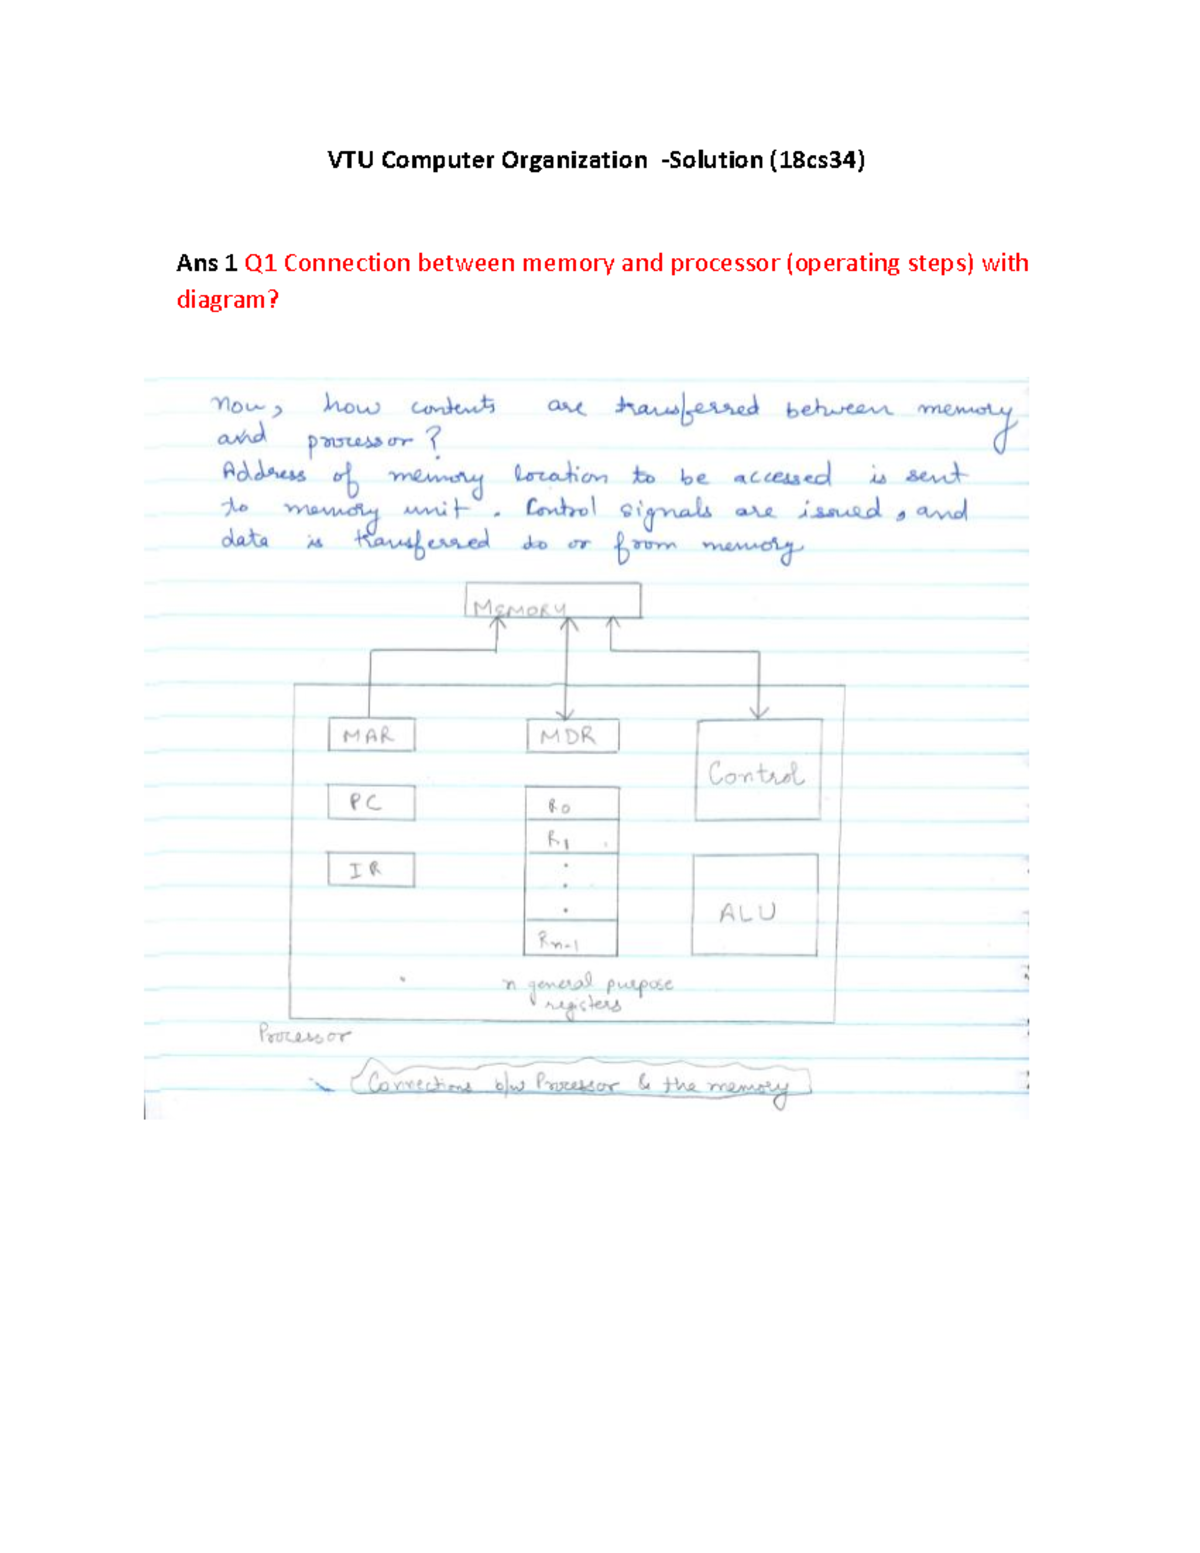 VTU Computer Organization -Solution (18cs34)
Ans 1 Q1 Connection between memory and processor (operating steps) with
diagram?
Now, how contents are transferred between memory
and processor?
Address of memory location to be accessed is sent
to memory unit. Control signals are issued, and
data is transferred to or from memory
MEMORY
MAR
MDR
Control
PC
R0
R1
IR
ALU
Rn-1
n general purpose
registers
Processor
Connections b/w Processor & the memory